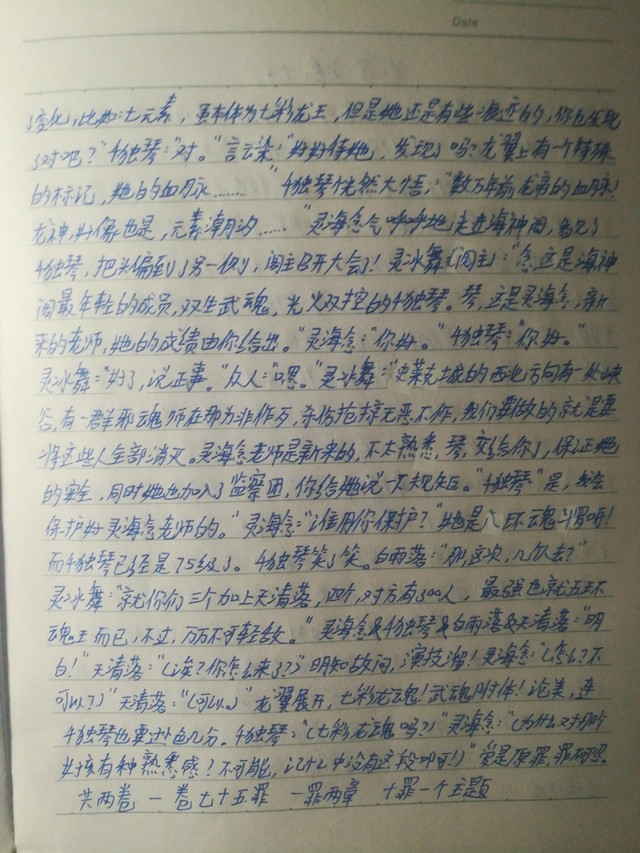 Date
了变化，比如：七元素，虽本体为七彩龙王，但是她还是有些的，你也发现
了对吧？"千独琴："对。"言云染："好好待她，发现了吗？龙翼上有一个特殊
的标记，她的血脉……"千独琴恍然大悟，"数万年前，龙帝的血脉！
龙神，好像也是，元素潮汐……"灵海念气呼呼地走进海神阁，看见了
千独琴，把头偏到了另一侧，阁主召开大会了！灵冰舞（阁主）："念，这是海神
阁最年轻的成员，双生武魂，光火双控的千独琴。琴，这是灵海念，新
来的老师，她的成绩由你给出。"灵海念："你好。"千独琴："你好。"
灵冰舞："好了，说正事。"众人："嗯。"灵冰舞："史莱克城的西北方向有一处峡
谷，有一群邪魂师在那为非作歹，杀伤抢掠无恶不作，我们要做的就是要
将这些人全部消灭。灵海念老师是新来的，不太熟悉，琴，交给你了，保证她
的安全，同时她也加入了监察团，你给她说一下规矩。"千独琴"是，我会
保护好灵海念老师的。"灵海念："谁用你保护？"她是八环魂斗罗呀！
而千独琴已经是75级了。千独琴笑了笑。白雨落："那，这次，几个人去？"
灵冰舞："就你们三个加上天清落，四个，对方有300人，最强也就五环
魂王而已，不过，万万不可轻敌。"灵海念&千独琴&白雨落&天清落："明
白！"天清落："（诶？你怎么来了？）"明知故问，演技溜！灵海念："（怎么？不
可以？）"天清落："（可以。）"龙翼展开，七彩龙魂！武魂附体！论美，连
千独琴也要逊色几分。千独琴："（七彩龙魂吗？）"灵海念："（为什么对那个
女孩有种熟悉感？不可能，记忆中没有这段呀！）"爱是原罪，罪
共两卷 一卷七十五罪 一罪两章 十罪一个主题